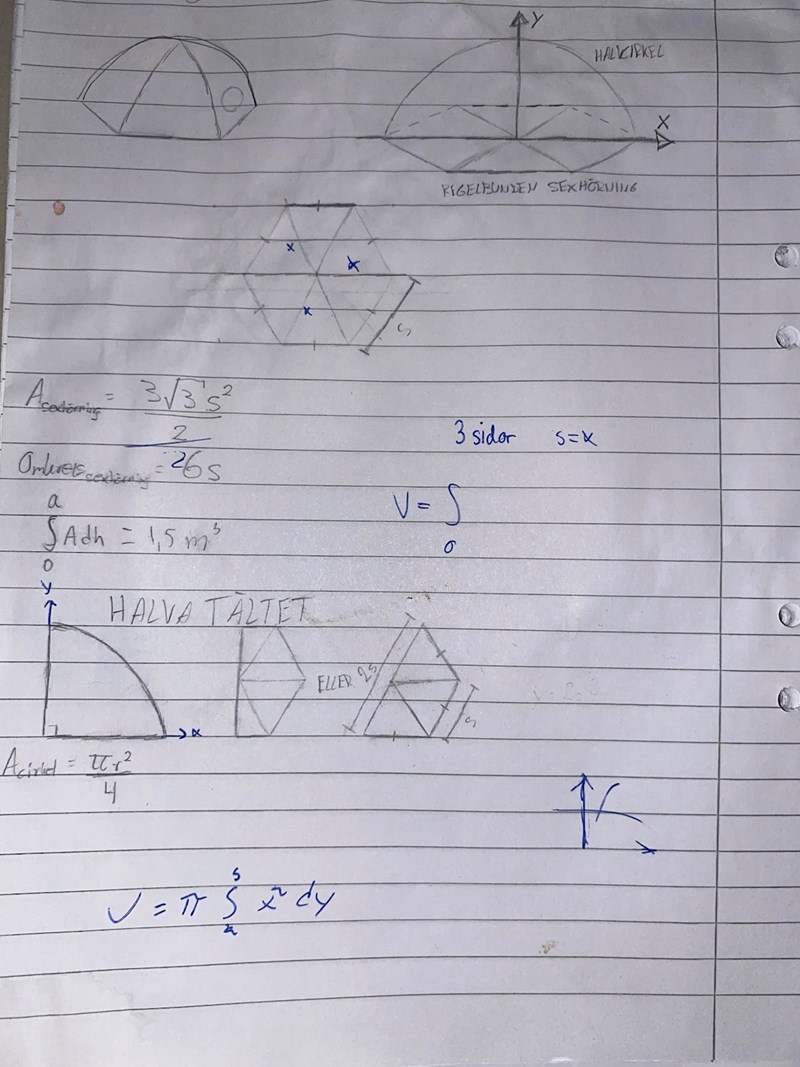 Y
HALVCIRKEL
X
REGELBUNDEN SEXHÖRNING
x
x
x
s
A sexhörning = 3√3 s² / 2
3 sidor s=x
Omkrets sexhörning = 6s
a
∫ A dh = 1,5 m³
0
V = ∫
0
y
HALVA TÄLTET
ELLER 2s
s
x
A cirkel = πr² / 4
s
V = π ∫ x² dy